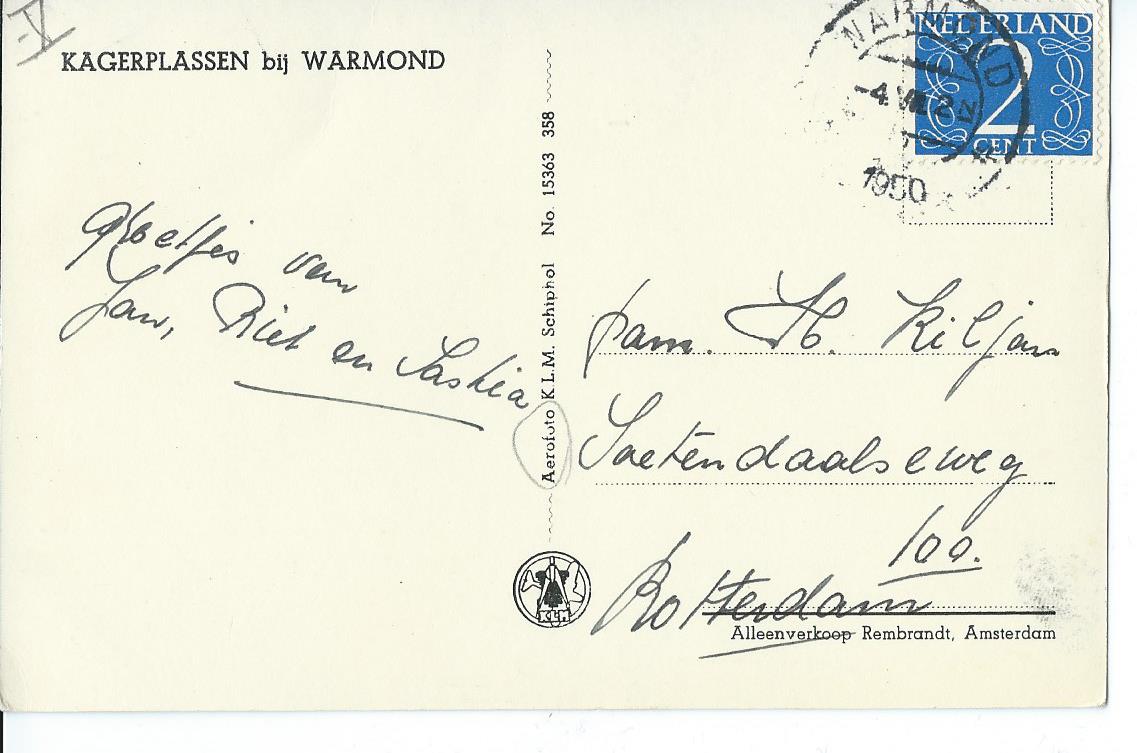 KAGERPLASSEN bij WARMOND
Groetjes van
Jan, Riet en Saskia
Aerofoto K.L.M. Schiphol No. 15363 358
KLM
WARMOND
1950
NEDERLAND
2
CENT
fam. H. Kiljan
Soetendaalseweg
100.
Rotterdam
Alleenverkoop Rembrandt, Amsterdam